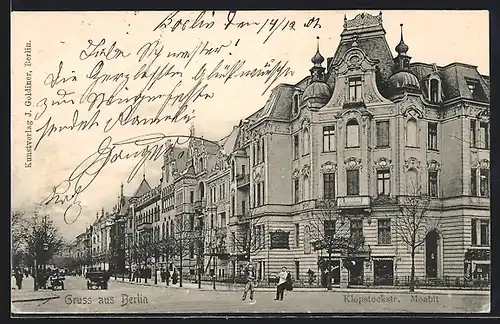 Kunstverlag J. Goldiner, Berlin.
Berlin den 14/12 01
Liebe Schwester!
Die herzlichsten Glückwünsche
zur
sendet Dir
Gruss aus Berlin
Klopstockstr. Moabit